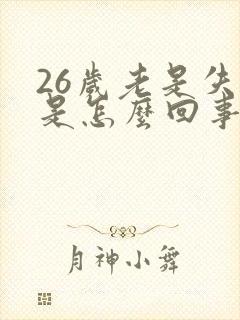 26歲老是失
是怎麼回事
月神小舞